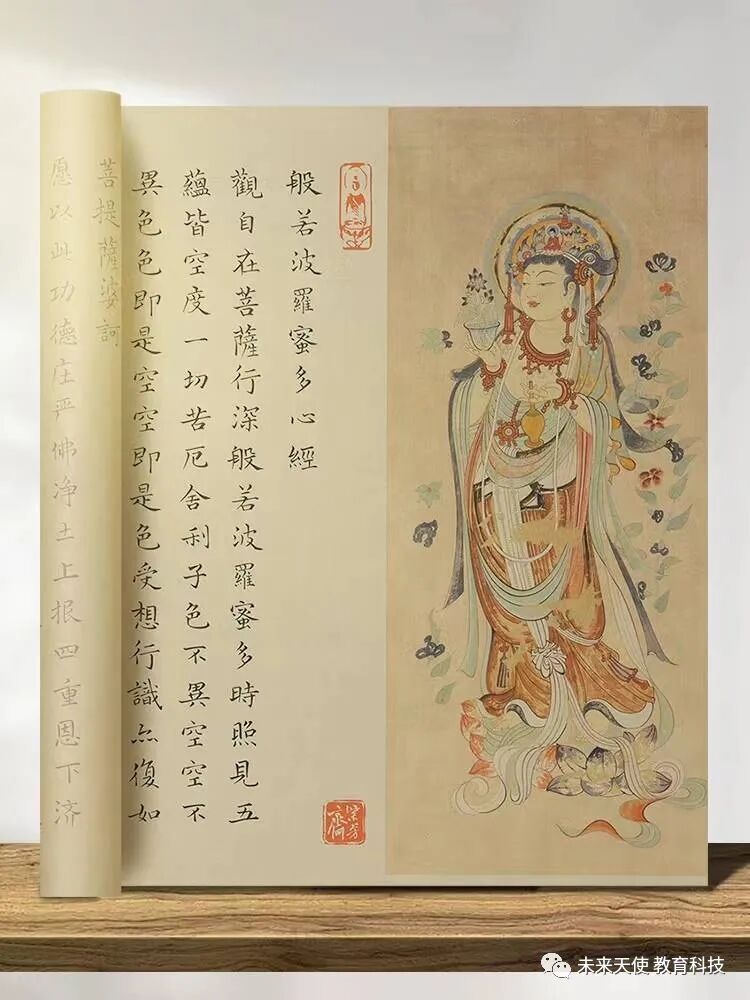 般若波羅蜜多心經
觀自在菩薩行深般若波羅蜜多時照見五
蘊皆空度一切苦厄舍利子色不異空空不
異色色即是空空即是色受想行識亦復如
菩提薩婆訶
愿以此功德庄严佛净土上报四重恩下济
未来天使 教育科技